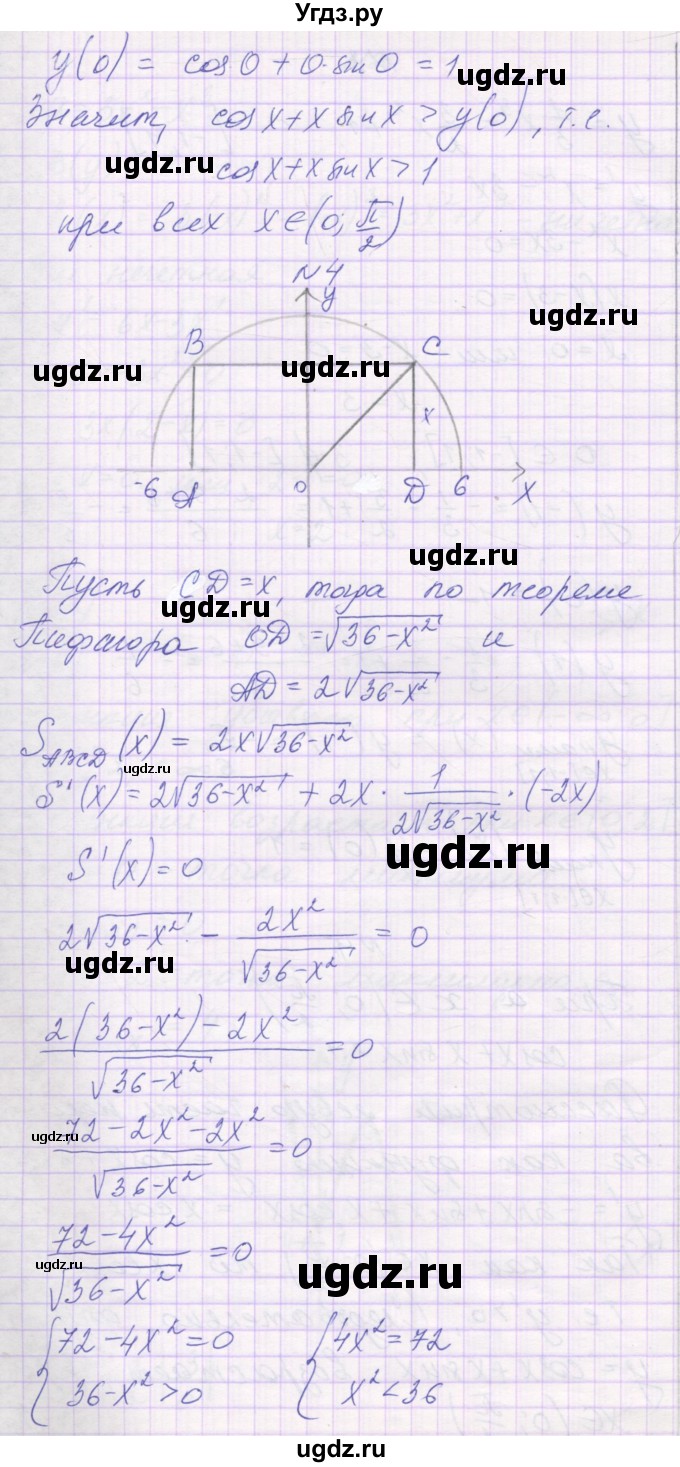 Угдз.ру
y(0) = cos0 + 0·sin0 = 1
ugdz.ru
Значит, cosx+x sinx > y(0), т.е.
ugdz.ru
cosx+x sinx > 1
при всех x∈(0; π/2)
N4
y
ugdz.ru
B
C
ugdz.ru
ugdz.ru
x
-6
A
0
D
6
X
ugdz.ru
Пусть CD=x, тогда по теореме
ugdz.ru
Пифагора OD = √(36-x²) и
AD = 2√(36-x²)
S_ABCD(x) = 2x√(36-x²)
ugdz.ru
S'(x) = 2√(36-x²) + 2x · 1/(2√(36-x²)) · (-2x)
ugdz.ru
S'(x) = 0
2√(36-x²) - 2x²/√(36-x²) = 0
ugdz.ru
(2(36-x²)-2x²)/√(36-x²) = 0
ugdz.ru
(72-2x²-2x²)/√(36-x²) = 0
(72-4x²)/√(36-x²) = 0
ugdz.ru
ugdz.ru
{72-4x²=0 {4x²=72
36-x²>0 x²<36
ugdz.ru